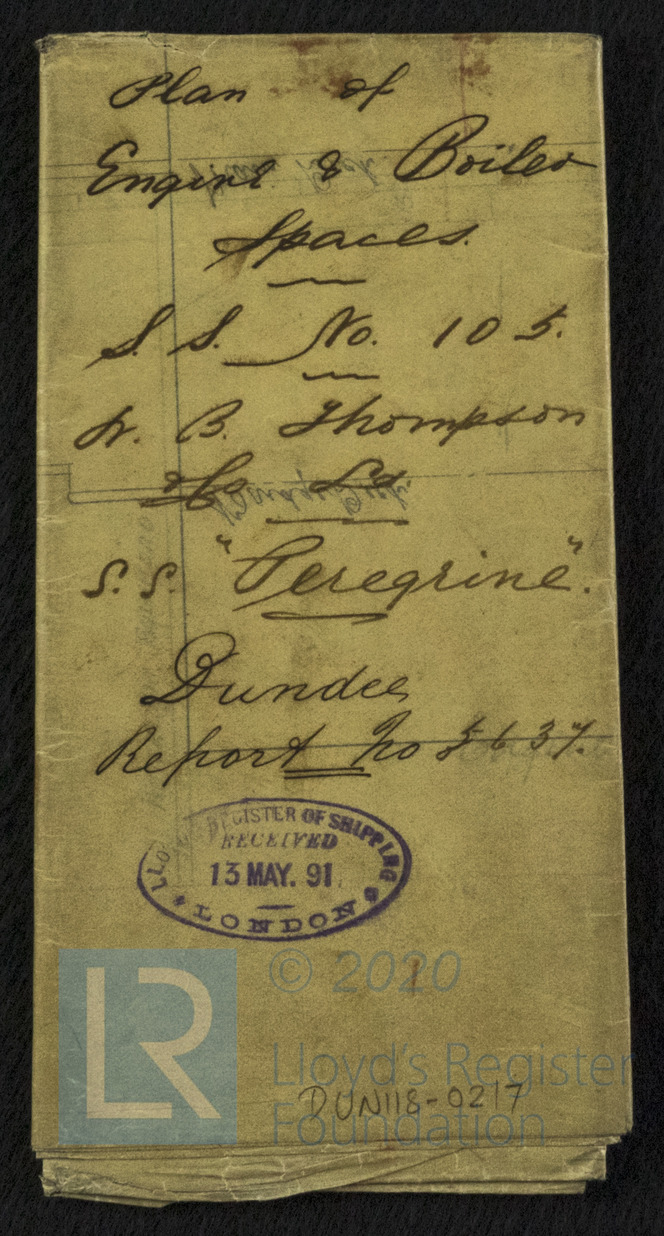 Plan of
Engine & Boiler
Spaces.
S. S. No. 105.
W. B. Thompson
& Co Ld
S. S. "Peregrine".
Dundee
Report No 5637.
LLOYD'S REGISTER OF SHIPPING
RECEIVED
13 MAY. 91
LONDON
LR
© 2020
Lloyd's Register
Foundation
DUN118-0217